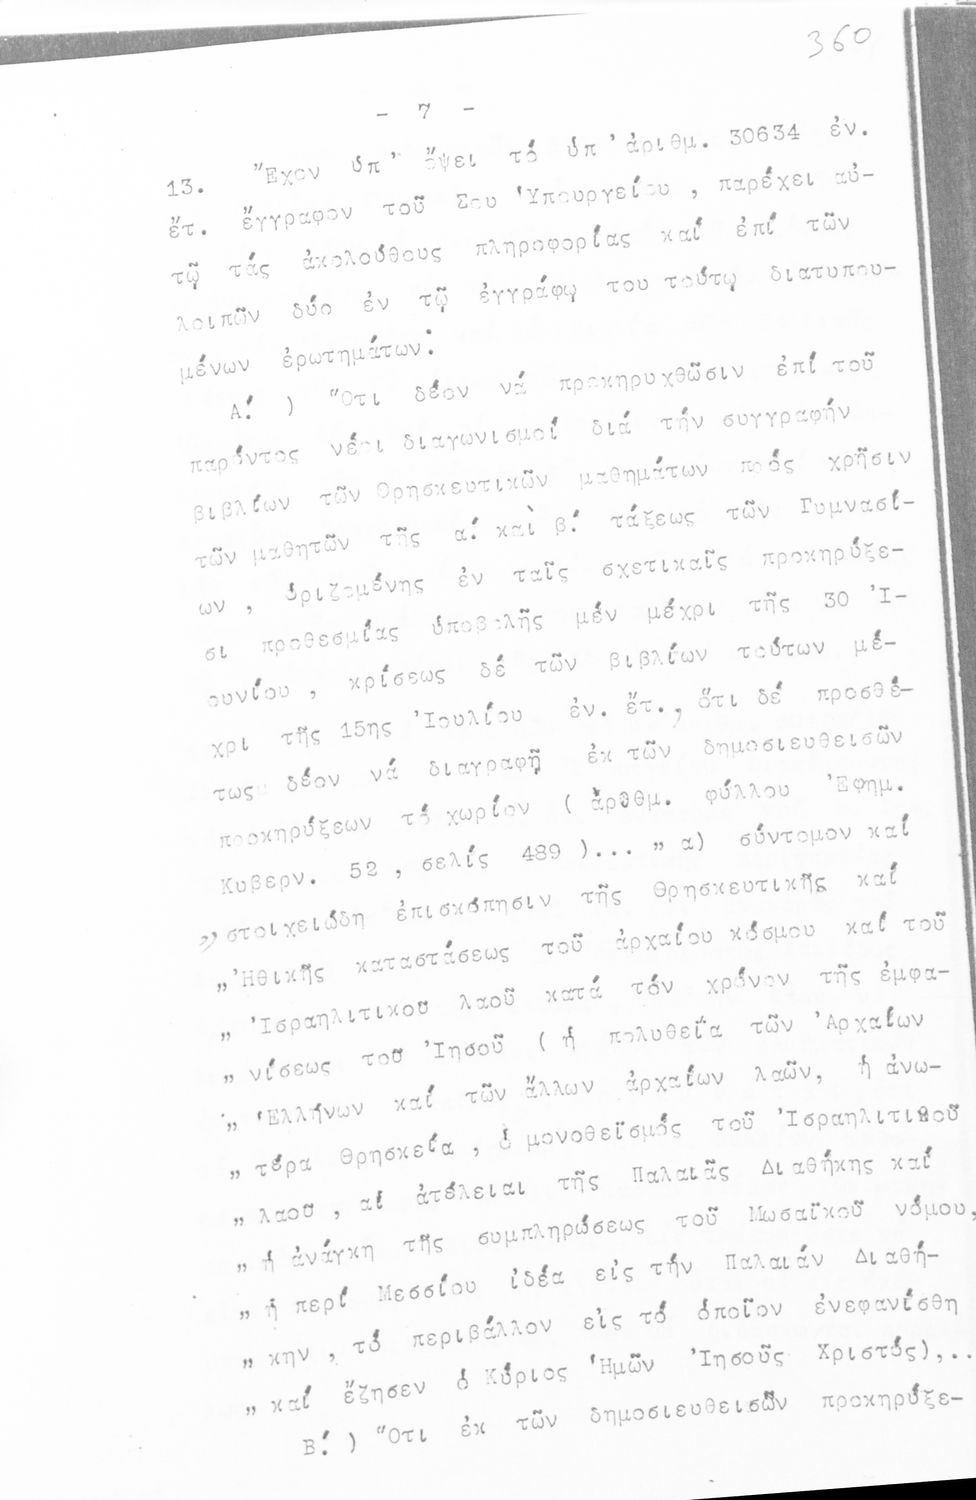 360
- 7 -
13. Ἔχον ὑπ' ὄψει τό ὑπ' ἀριθμ. 30634 ἐν.
ἔτ. ἔγγραφον τοῦ Σου Ὑπουργείου , παρέχει αὐ-
τῷ τάς ἀκολούθους πληροφορίας καί ἐπί τῶν
λοιπῶν δύο ἐν τῷ ἐγγράφῳ του τούτῳ διατυπου-
μένων ἐρωτημάτων:
Α.' ) Ὅτι δέον νά προκηρυχθῶσιν ἐπί τοῦ
παρόντος νέοι διαγωνισμοί διά τήν συγγραφήν
βιβλίων τῶν Θρησκευτικῶν μαθημάτων πρός χρῆσιν
τῶν μαθητῶν τῆς α.' καὶ β.' τάξεως τῶν Γυμνασί-
ων , ὁριζομένης ἐν ταῖς σχετικαῖς προκηρύξε-
σι προθεσμίας ὑποβολῆς μέν μέχρι τῆς 30 Ἰ-
ουνίου , κρίσεως δέ τῶν βιβλίων τούτων μέ-
χρι τῆς 15ης Ἰουλίου ἐν. ἔτ., ὅτι δέ προσθέ-
τως δέον νά διαγραφῇ ἐκ τῶν δημοσιευθεισῶν
προκηρύξεων τό χωρίον ( ἀρθθμ. φύλλου Ἐφημ.
Κυβερν. 52 , σελίς 489 )... „ α) σύντομον καί
„ στοιχειώδη ἐπισκόπησιν τῆς θρησκευτικῆς καί
„ Ἠθικῆς καταστάσεως τοῦ ἀρχαίου κόσμου καί τοῦ
„ Ἰσραηλιτικοῦ λαοῦ κατά τόν χρόνον τῆς ἐμφα-
„ νίσεως τοῦ Ἰησοῦ ( ἡ πολυθεΐα τῶν Ἀρχαίων
„ Ἑλλήνων καί τῶν ἄλλων ἀρχαίων λαῶν, ἡ ἀνω-
„ τέρα θρησκεία , ὁ μονοθεϊσμός τοῦ Ἰσραηλιτικοῦ
„ λαοῦ , αἱ ἀτέλειαι τῆς Παλαιᾶς Διαθήκης καί
„ ἡ ἀνάγκη τῆς συμπληρώσεως τοῦ Μωσαϊκοῦ νόμου,
„ ἡ περί Μεσσίου ἰδέα εἰς τήν Παλαιάν Διαθή-
„ κην , τό περιβάλλον εἰς τό ὁποῖον ἐνεφανίσθη
„ καί ἔζησεν ὁ Κύριος Ἡμῶν Ἰησοῦς Χριστός),..
Β.' ) Ὅτι ἐκ τῶν δημοσιευθεισῶν προκηρύξε-